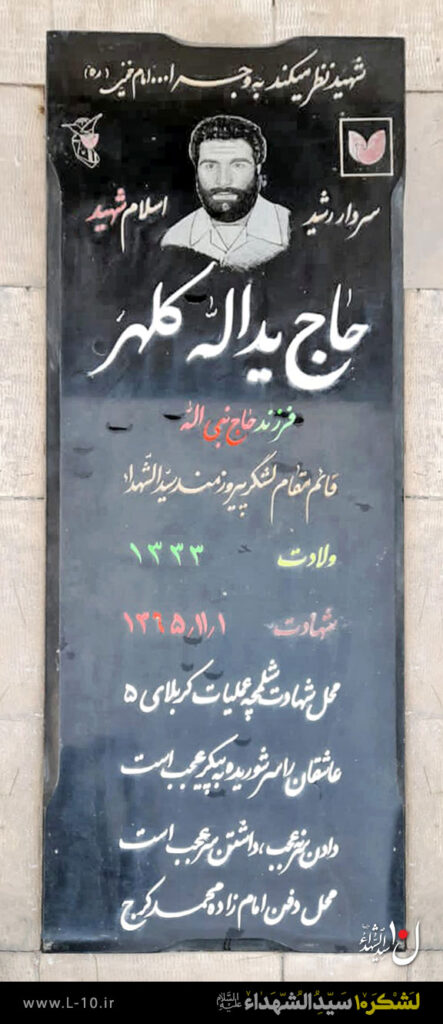 شهید نظر میکند به وجه الله... امام خمینی (ره)
سردار رشید اسلام شهید
حاج یداله کلهر
فرزند حاج نبی اله
قائم مقام لشگر پیروزمند سیدالشهداء
ولادت ۱۳۳۳
شهادت ۱۳۶۵/۱۱/۱
محل شهادت شلمچه عملیات کربلای ۵
عاشقان را سر شوریده به پیکر عجب است
دادن سر نه عجب، داشتن سر عجب است
محل دفن امام زاده محمد کرج
ل۱۰ سیدالشهداء
www.L-10.ir
لشکر۱۰ سیدالشهداء علیه السلام